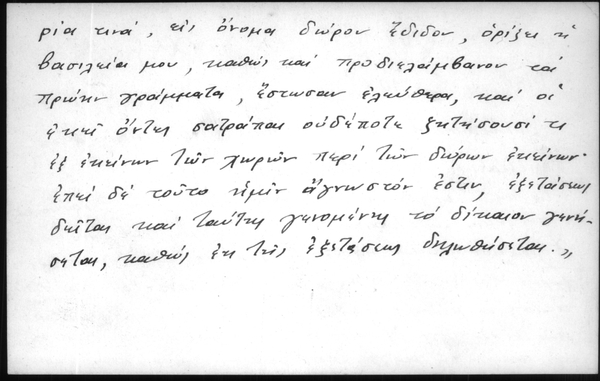 ρία τινά, εἰς ὄνομα δώρον ἔδιδον, ὁρίζει ἡ
βασιλεία μου, καθώς καί προδιελάμβανον τά
πρώην γράμματα, ἔστωσαν ἐλεύθερα, καί οἱ
ἐκεῖ ὄντες σατράπαι οὐδέποτε ζητήσουσί τι
ἐξ ἐκείνων τῶν χωρῶν περί τῶν δώρων ἐκείνων·
ἐπεί δέ τοῦτο ἡμῖν ἄγνωστόν ἐστιν, ἐξετάσεως
δεῖται καί ταύτης γενομένης τό δίκαιον γενή-
σεται, καθώς ἐκ τῆς ἐξετάσεως δηλωθήσεται.„